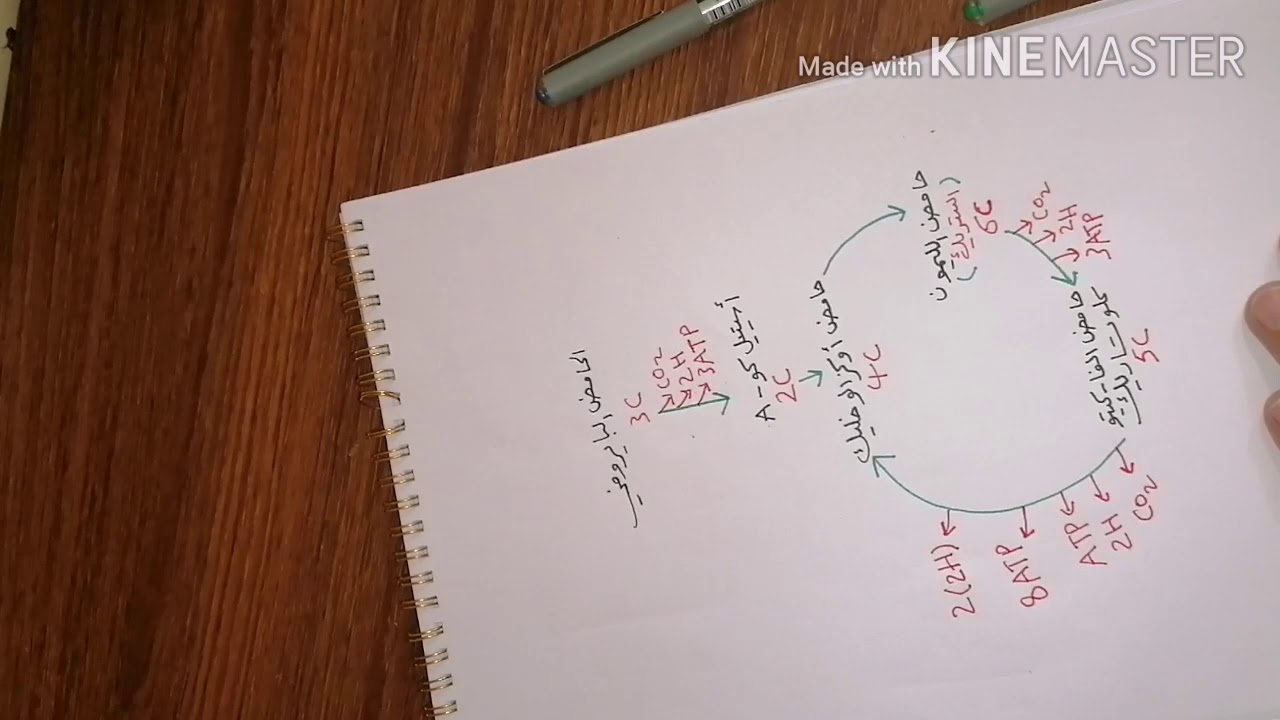 Made with KINEMASTER
الحامض البايروفي
3C
CO2
2H
3ATP
أستيل كو - A
2C
حامض أوكزالو خليك
4C
حامض الليمون
(الستريك)
6C
CO2
2H
3ATP
حامض الفا كيتو
كلوتاريك
5C
CO2
2H
ATP
8ATP
2(2H)